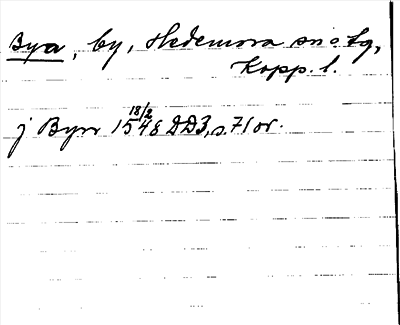 Bya, by, Hedemora sn o tg,
Kopp. l.
18/2
j Byn 1548 DD3, s. 71 or.